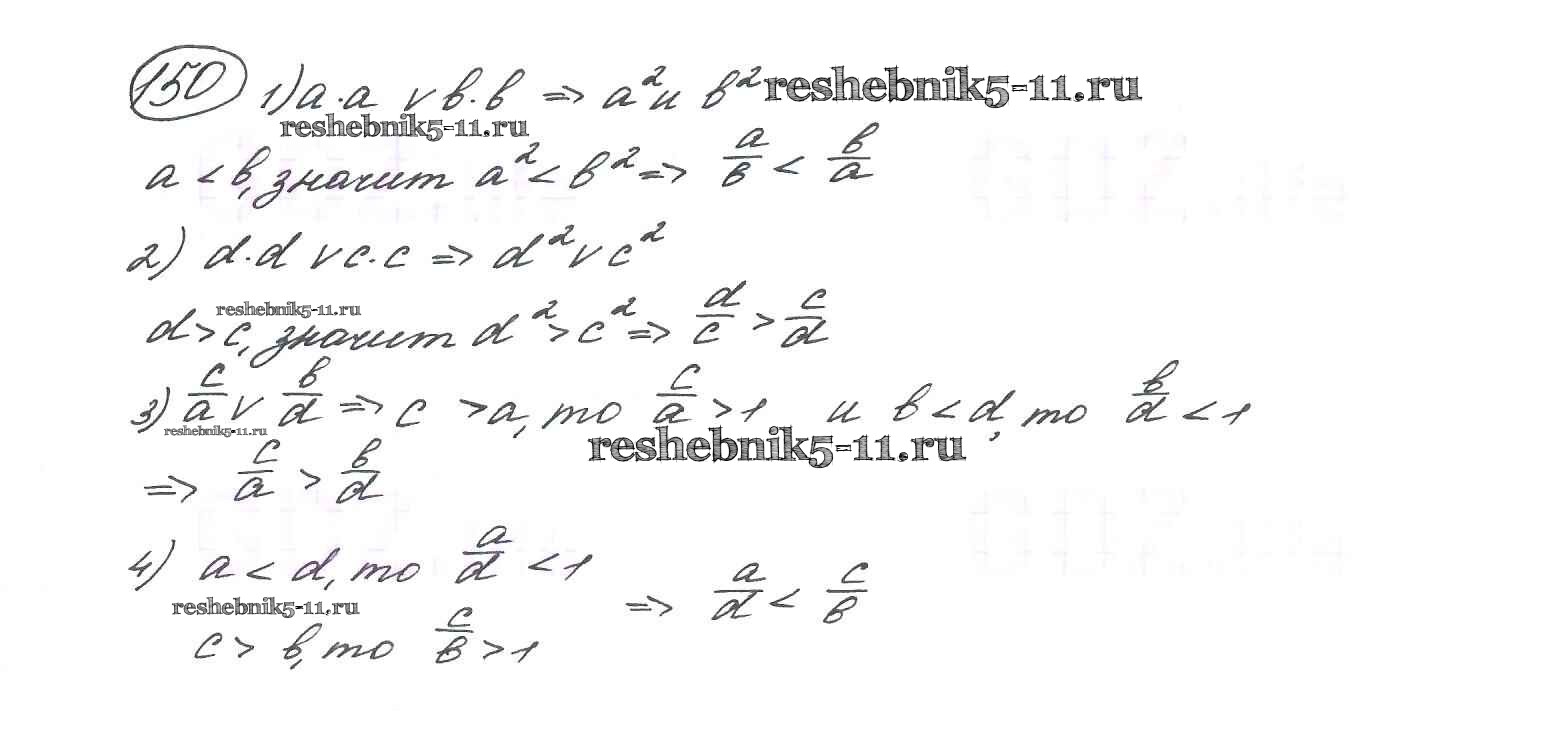 150 1) a·a ∨ b·b => a² и b² reshebnik5-11.ru
reshebnik5-11.ru
a < b, значит a² < b² => a/b < b/a
2) d·d ∨ c·c => d² ∨ c²
reshebnik5-11.ru
d > c, значит d² > c² => d/c > c/d
3) c/a ∨ b/d => c > a, то c/a > 1 и b < d, то b/d < 1
reshebnik5-11.ru
reshebnik5-11.ru
=> c/a > b/d
4) a < d, то a/d < 1
=> a/d < c/b
reshebnik5-11.ru
c > b, то c/b > 1